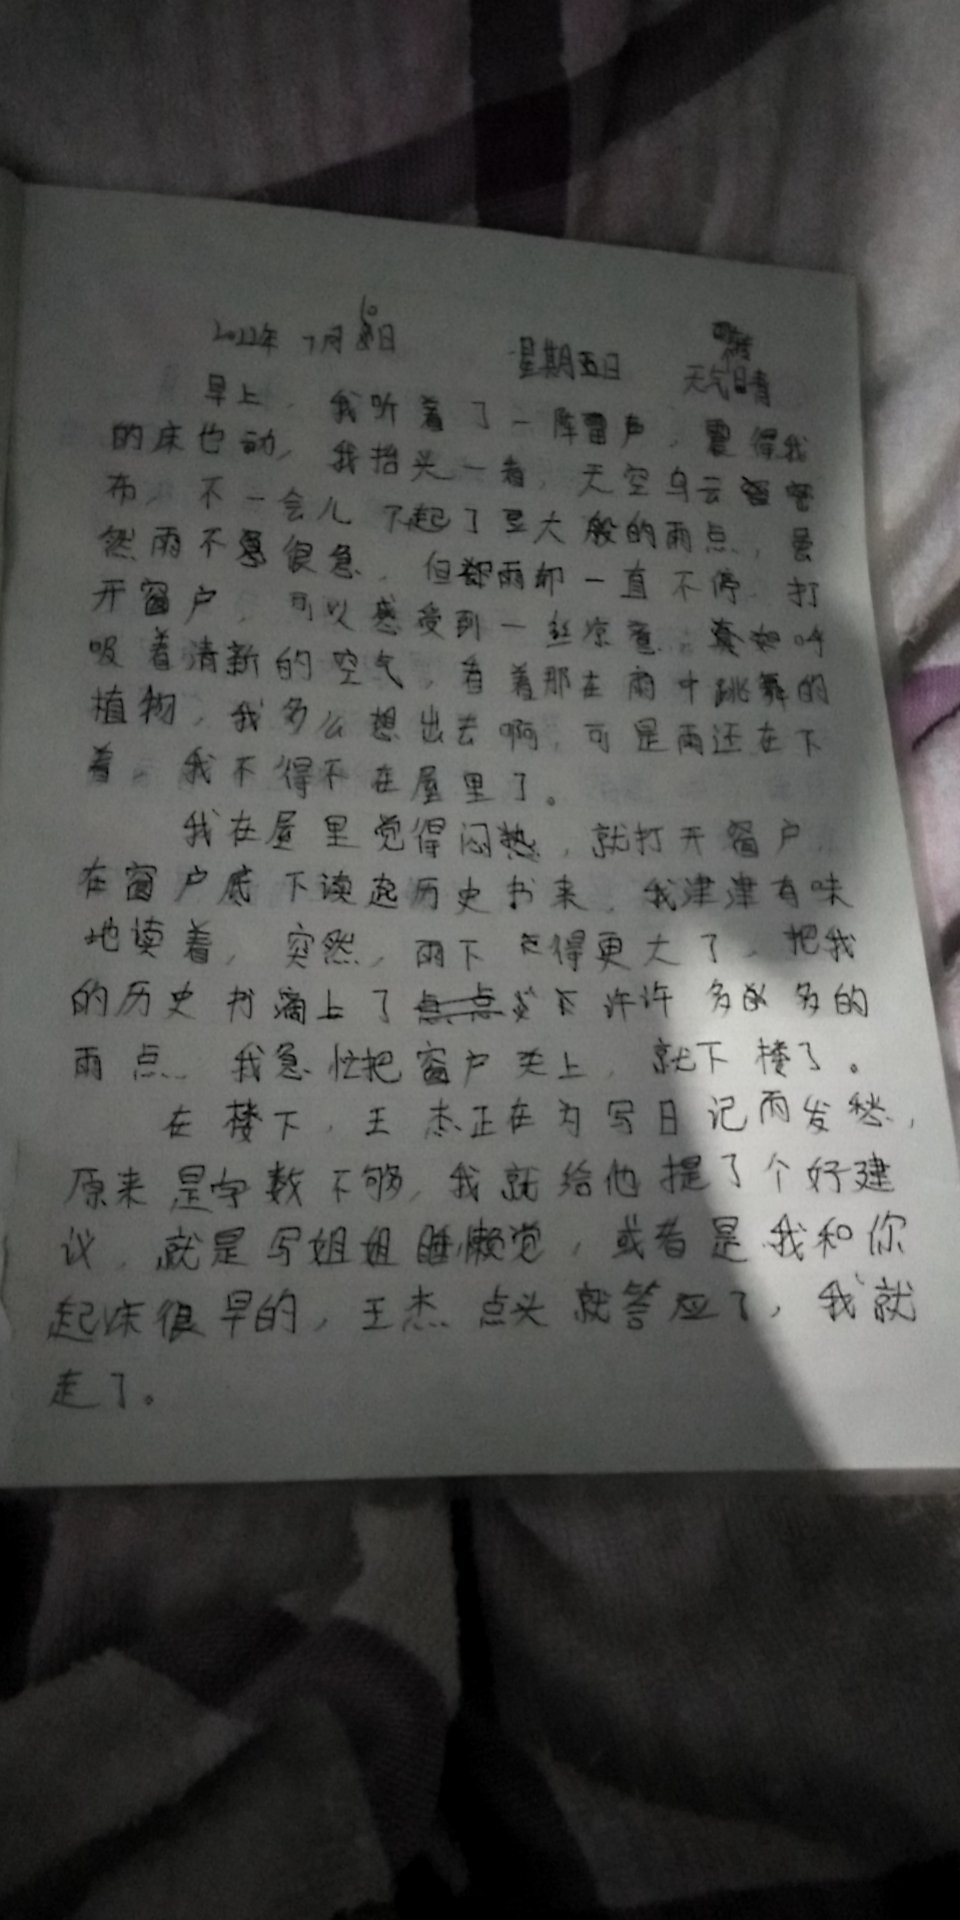 2022年 7月10日 星期五日 雨转
天气晴
早上，我听着了一阵雷声，震得我
的床也动，我抬头一看，天空乌云密
布，不一会儿下起了豆大般的雨点，虽
然雨不是很急，但雨却一直不停，打
开窗户，可以感受到一丝凉意，呼
吸着清新的空气，看着那在雨中跳舞的
植物，我多么想出去啊，可是雨还在下
着，我不得不在屋里了。
我在屋里觉得闷热，就打开窗户，
在窗户底下读起历史书来，我津津有味
地读着，突然，雨下得更大了，把我
的历史书滴上了许许多多的
雨点，我急忙把窗户关上，就下楼了。
在楼下，王杰正在为写日记而发愁，
原来是字数不够，我就给他提了个好建
议，就是写姐姐睡懒觉，或者是我和你
起床很早的，王杰点头就答应了，我就
走了。